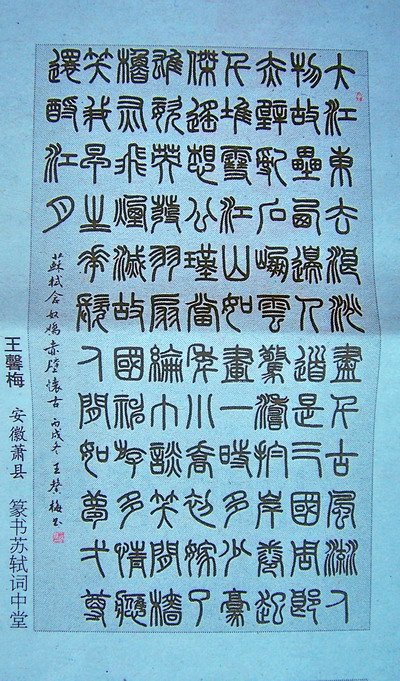 大江東去浪淘盡千古風流人
物故壘西邊人道是三國周郎
赤壁亂石崩雲驚濤拍岸卷起
千堆雪江山如畫一時多少豪
傑遙想公瑾當年小喬初嫁了
雄姿英發羽扇綸巾談笑間檣
櫓灰飛煙滅故國神游多情應
笑我早生華髮人間如尊弌尊
還酹江月
蘇軾念奴嬌赤壁懷古 丙戌冬 王馨梅书
王馨梅 安徽萧县 篆书苏轼词中堂